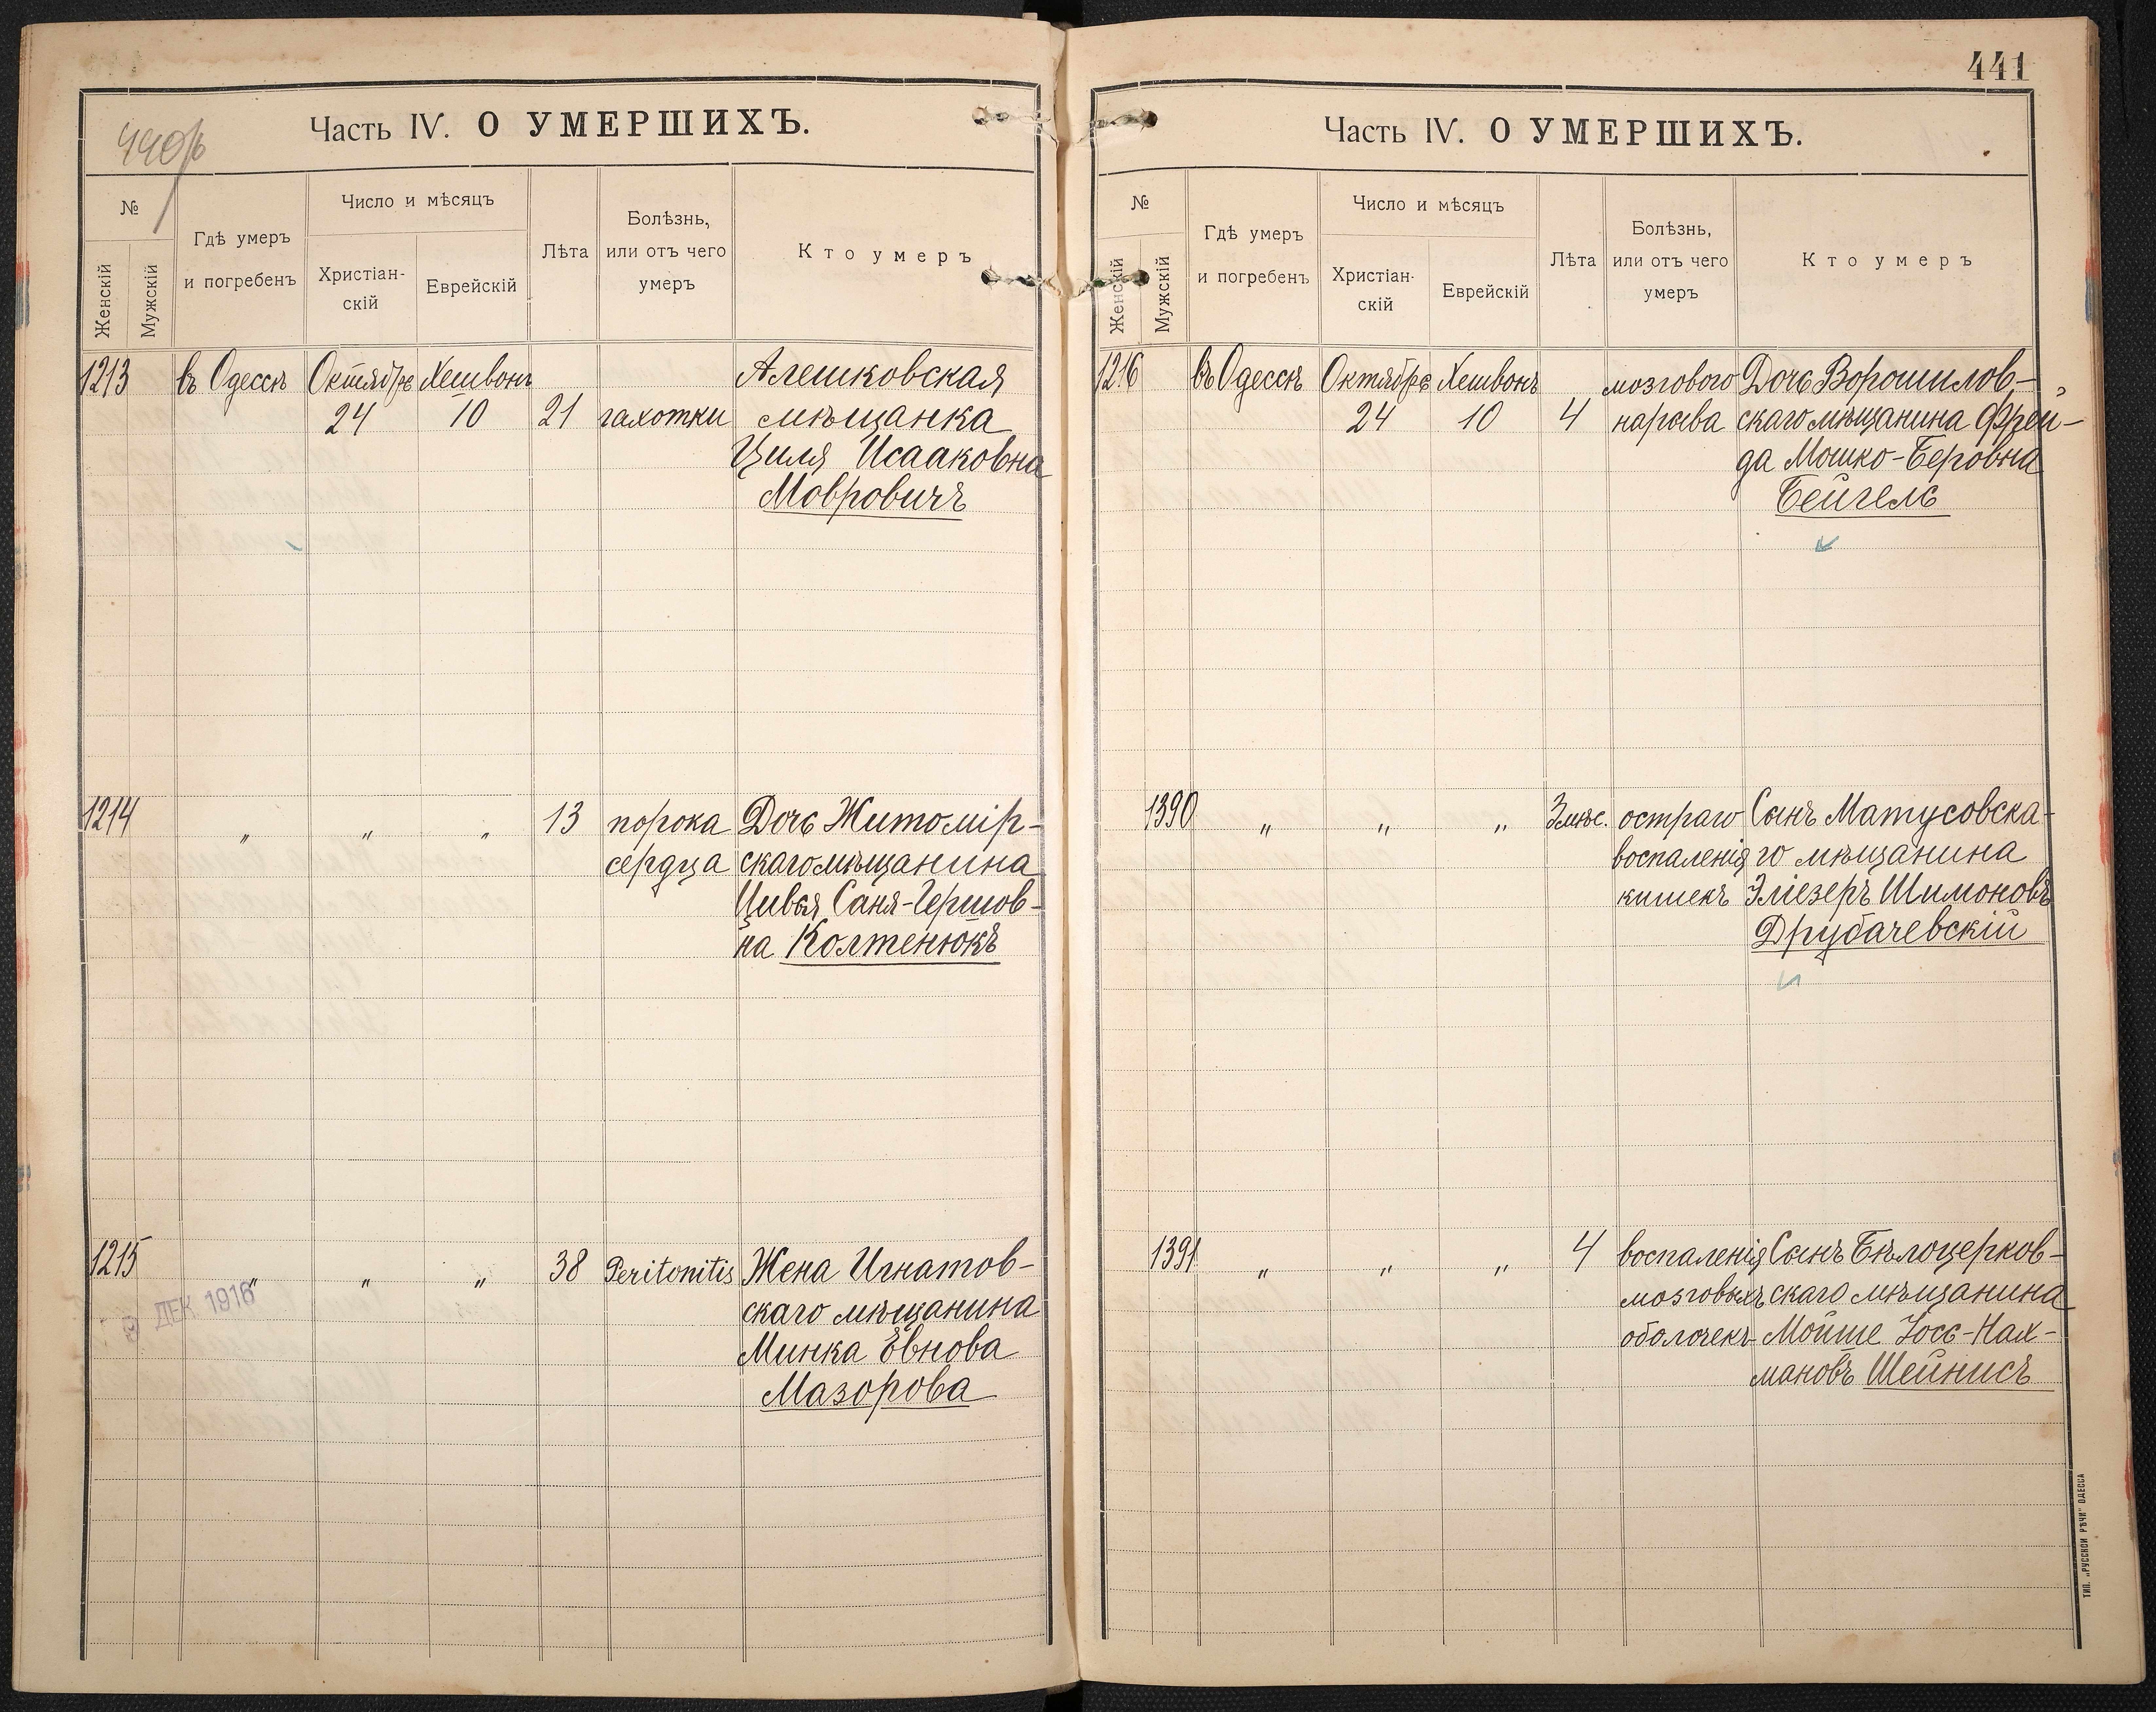 440/б
Часть IV. О УМЕРШИХЪ.
№
Женскій
Мужскій
Гдѣ умеръ
и погребенъ
Число и мѣсяцъ
Христіан-
скій
Еврейскій
Лѣта
Болѣзнь,
или отъ чего
умеръ
Кто умеръ
1213 въ Одессѣ Октябрь Хешвонъ Алешковская
24 10 21 чахотки мѣщанка
Циля Исааковна
Мовровичъ
1214 „ „ „ 13 порока Дочь Житомір-
сердца скаго мѣщанина
Цивья Саня-Гершов-
на Колтенюкъ
1215 „ „ „ 38 Peritonitis Жена Игнатов-
9 ДЕК 1916
скаго мѣщанина
Минка Евнова
Мазорова
441
Часть IV. О УМЕРШИХЪ.
№
Женскій
Мужскій
Гдѣ умеръ
и погребенъ
Число и мѣсяцъ
Христіан-
скій
Еврейскій
Лѣта
Болѣзнь,
или отъ чего
умеръ
Кто умеръ
1216 въ Одессѣ Октябрь Хешвонъ мозгового Дочь Ворошилов-
24 10 4 нарыва скаго мѣщанина Фрей-
да Мошко-Беровна
Бейгель
1390 „ „ „ 3 мѣс. остраго Сынъ Матусовска-
воспаленія го мѣщанина
кишекъ Эліезеръ Шимоновъ
Друбачевскій
1391 „ „ „ 4 воспаленія Сынъ Бѣлоцерков-
мозговыхъ скаго мѣщанина
оболочекъ Мойше Іось-Нах-
мановъ Шейнисъ
ТИП. „РУССКОЙ РѢЧИ" ОДЕССА